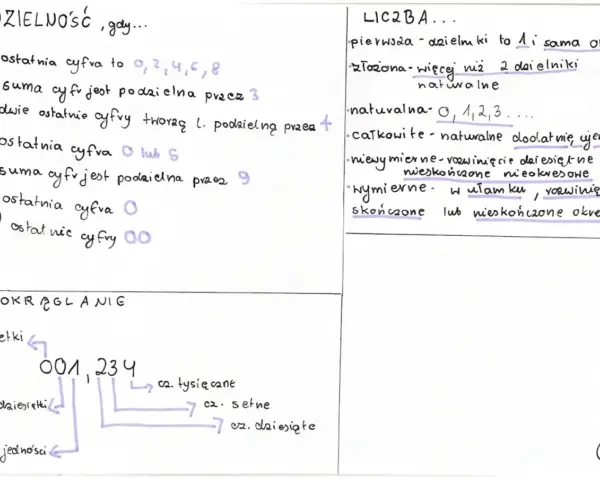 DZIELNOŚĆ, gdy...
ostatnia cyfra to 0, 2, 4, 6, 8
suma cyfr jest podzielna przez 3
dwie ostatnie cyfry tworzą l. podzielną przez 4
ostatnia cyfra 0 lub 5
suma cyfr jest podzielna przez 9
ostatnia cyfra 0
ostatnie cyfry 00
LICZBA...
pierwsza - dzielniki to 1 i sama
złożona - więcej niż 2 dzielniki
naturalne
naturalna - 0, 1, 2, 3....
całkowite - naturalne dodatnie uje
niewymierne - rozwinięcie dziesiętne
nieskończone nieokresowe
wymierne - w ułamku, rozwinię
skończone lub nieskończone okre
OKRĄGLANIE
etki
001,234
cz. tysięczne
dziesiątki
cz. setne
cz. dziesiąte
jedności